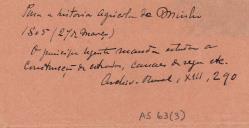 Para a historia agricola do Minho
1805 (27 de Março)
O principe regente manda estudar a
construcção de estradas, canaes de rega etc.
Archivo Rural, XIII, 290
AS 63(3)